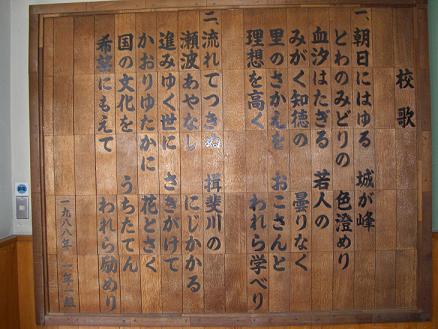 校歌
一、朝日にはゆる 城が峰
とわのみどりの 色澄めり
血汐はたぎる 若人の
みがく知徳の 曇りなく
里のさかえを おこさんと
理想を高く われら学べり
二、流れてつきぬ 揖斐川の
瀬波あやなし にじかかる
進みゆく世に さきがけて
かおりゆたかに 花とさく
国の文化を うちたてん
希望にもえて われら励めり
一九八八年 一年一組